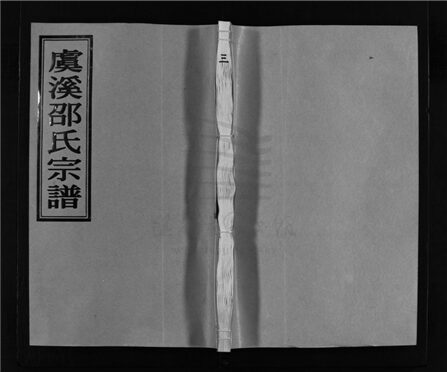 虞溪邵氏宗譜
三